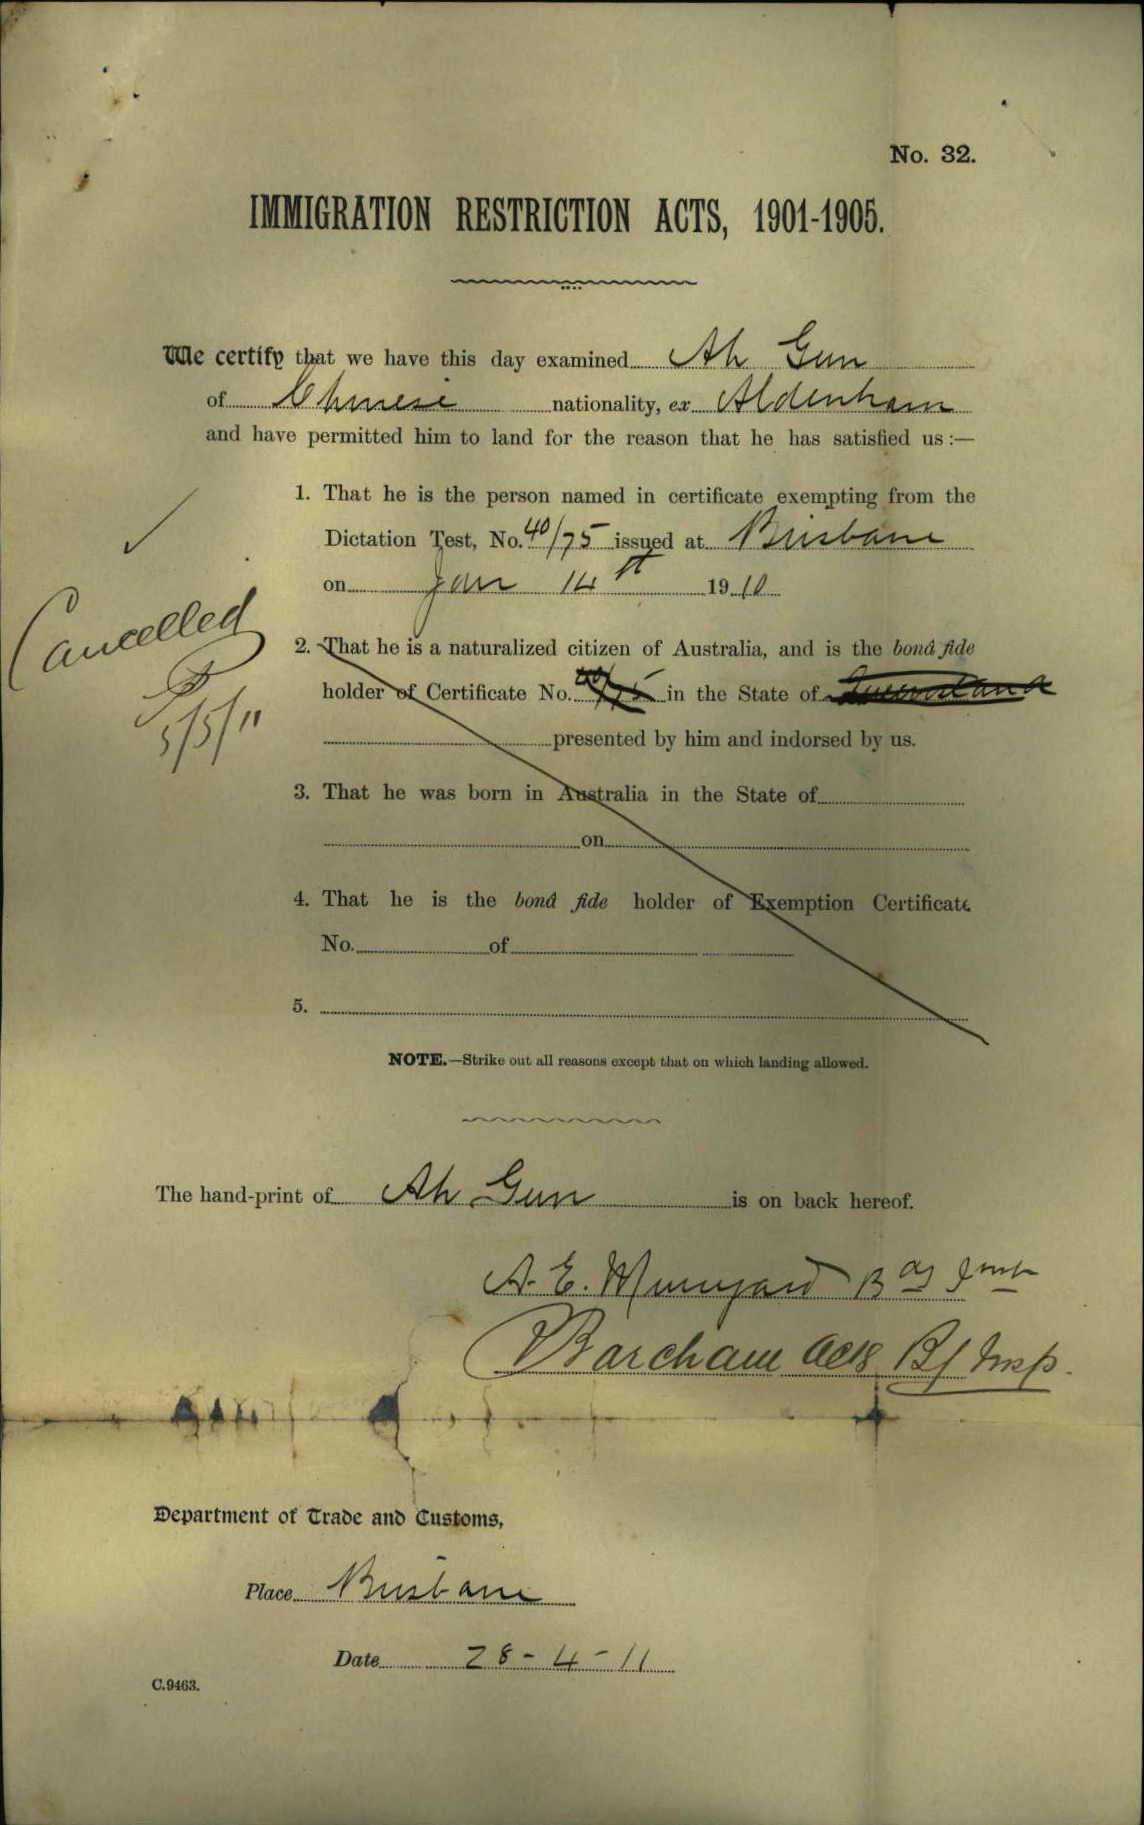 No. 32.
IMMIGRATION RESTRICTION ACTS, 1901-1905.
We certify that we have this day examined Ah Gun
of Chinese nationality, ex Aldenham
and have permitted him to land for the reason that he has satisfied us :—
1. That he is the person named in certificate exempting from the
Dictation Test, No. 40/75 issued at Brisbane
on Jan 14th 1910
Cancelled
5/5/11
2. That he is a naturalized citizen of Australia, and is the bonâ fide
holder of Certificate No. 40/75 in the State of Queensland
presented by him and indorsed by us.
3. That he was born in Australia in the State of
on
4. That he is the bonâ fide holder of Exemption Certificate
No. of
5.
NOTE.—Strike out all reasons except that on which landing allowed.
The hand-print of Ah Gun is on back hereof.
A. E.
Barcham Actg Insp.
Department of Trade and Customs,
Place Brisbane
Date 28-4-11
C.9463.